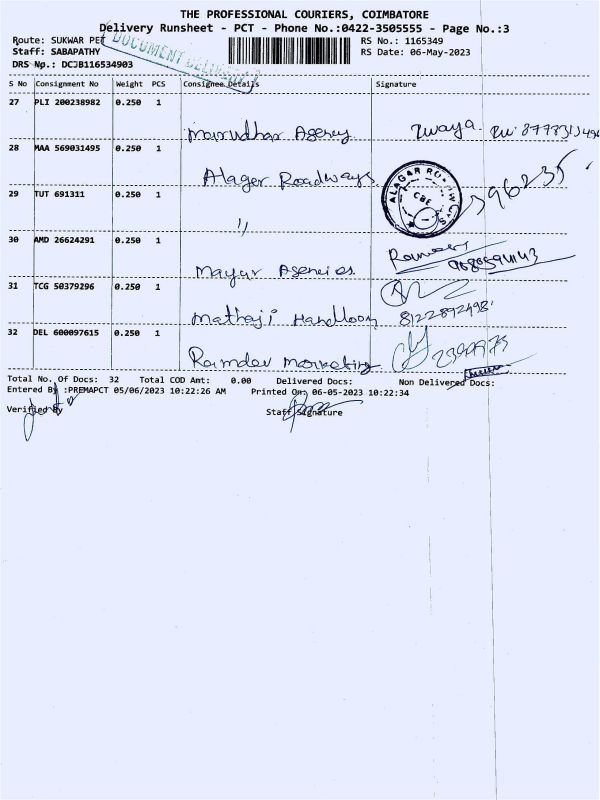 THE PROFESSIONAL COURIERS, COIMBATORE
Delivery Runsheet - PCT - Phone No.:0422-3505555 - Page No.:3
Route: SUKWAR PET
RS No.: 1165349
Staff: SABAPATHY
RS Date: 06-May-2023
DRS No.: DCJB116534903
DOCUMENT DELIVERY
S No Consignment No Weight PCS Consignee Details Signature
27 PLI 200238982 0.250 1
Marudhar Agency
28 MAA 569031495 0.250 1
Alager Roadways
ALAGAR ROADWAYS
CBE
29 TUT 691311 0.250 1
"
30 AMD 26624291 0.250 1
Mayur Agencies
31 TCG 50379296 0.250 1
Mathaji Handloom
8122892498
32 DEL 600097615 0.250 1
Ramdev Marketing
Total No. Of Docs: 32 Total COD Amt: 0.00 Delivered Docs: Non Delivered Docs:
Entered By :PREMAPCT 05/06/2023 10:22:26 AM Printed On: 06-05-2023 10:22:34
Verified By Staff Signature